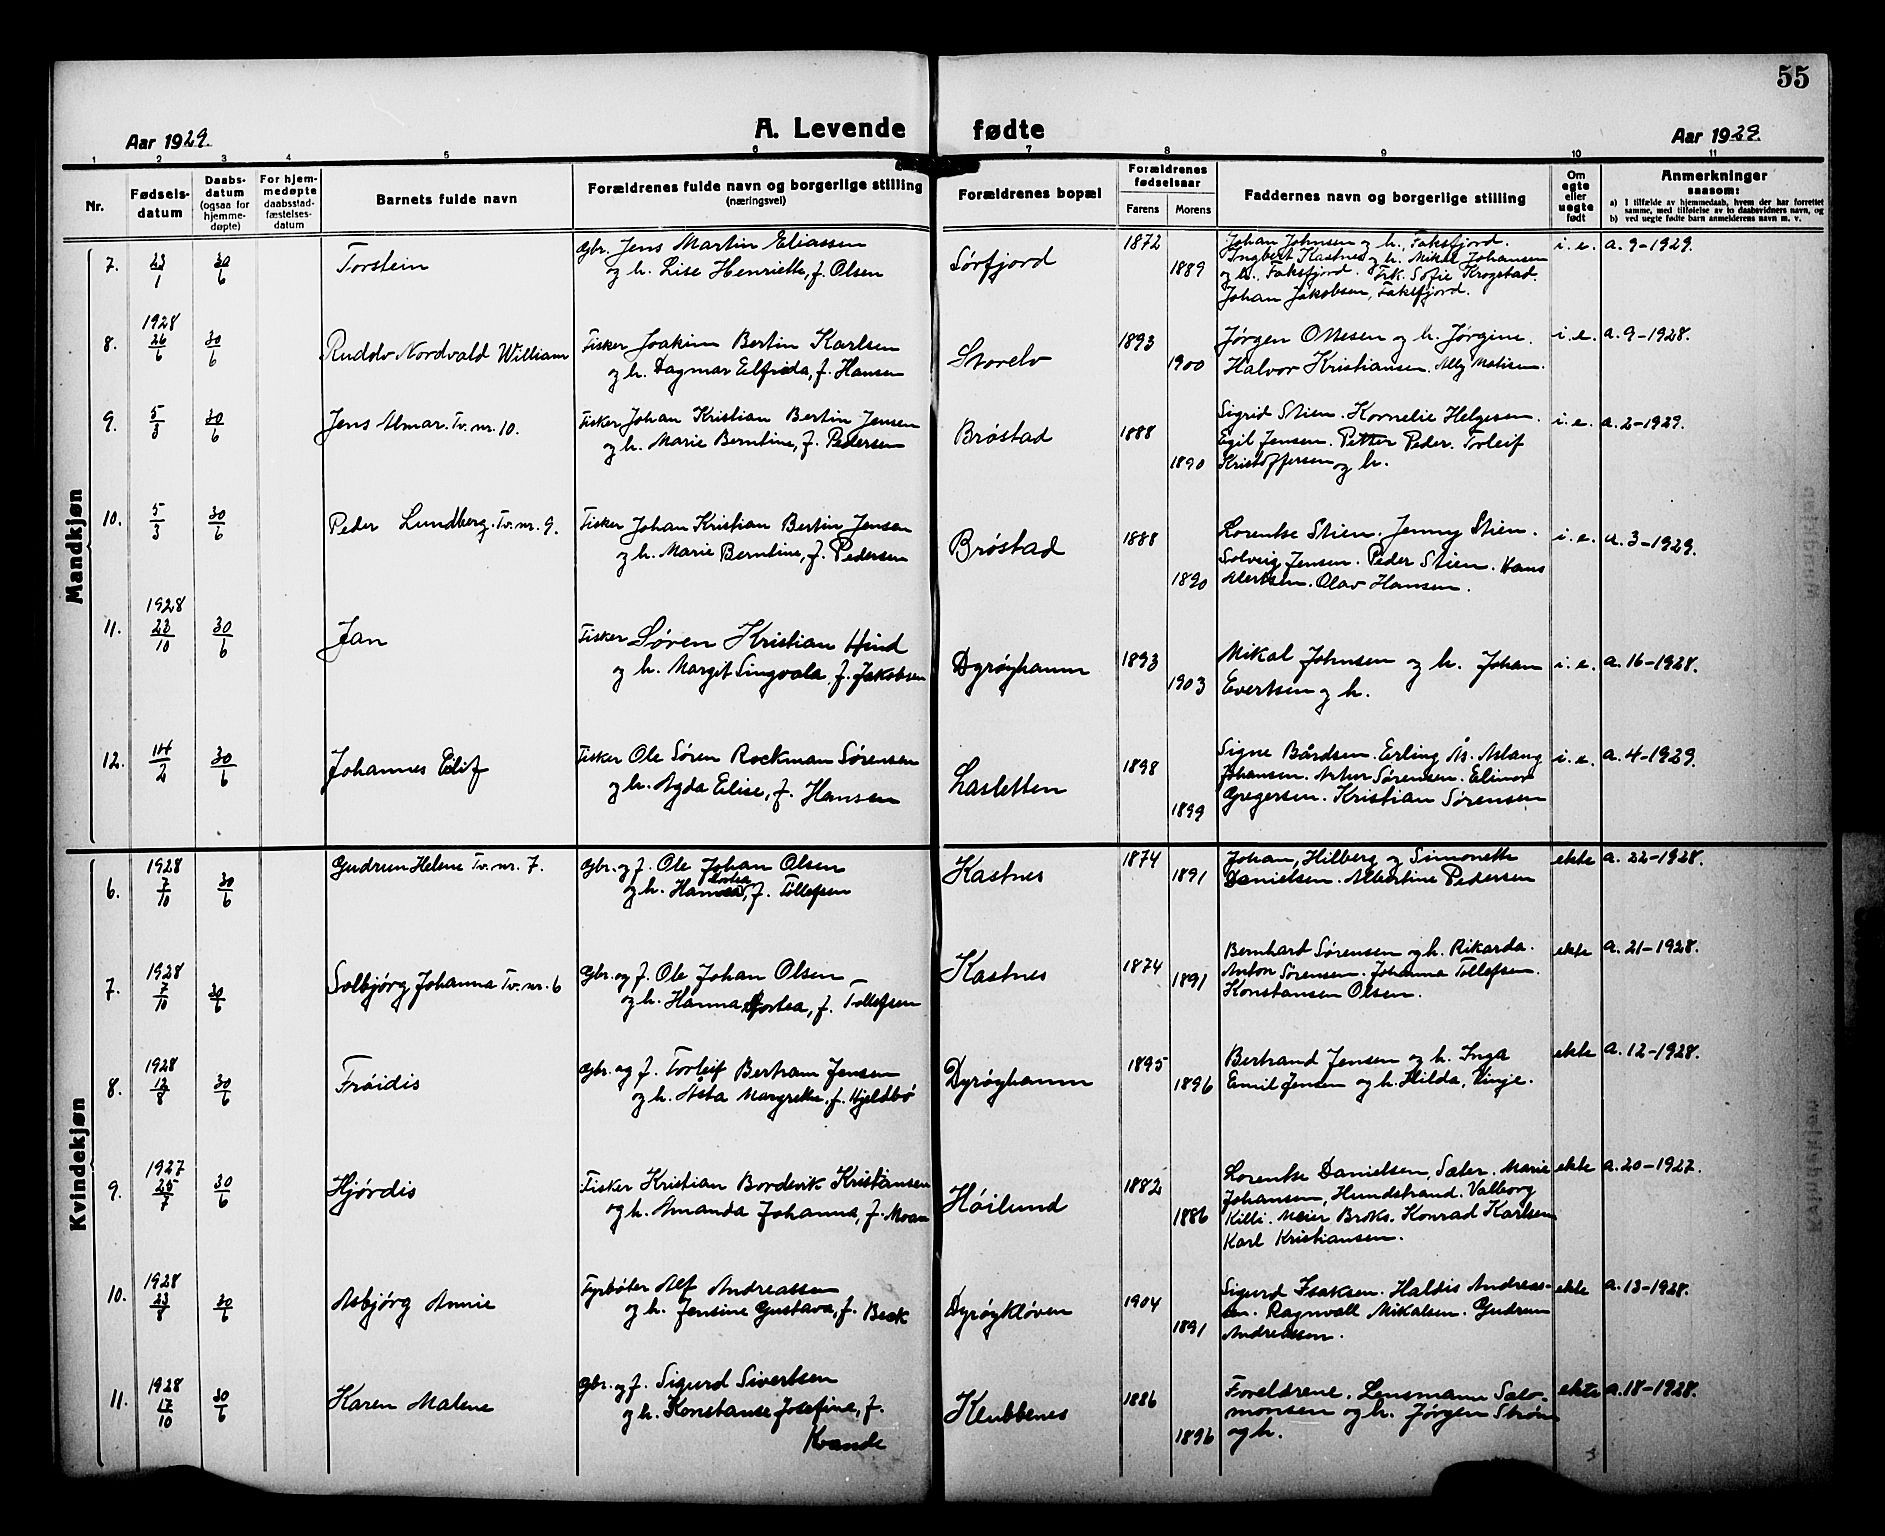 55
Aar 1929.
A. Levende fødte
Aar 1929.
1 2 3 4 5 6 7 8 9 10 11
Nr.
Fødsels-
datum
Daabs-
datum
(ogsaa for
hjemme-
døpte)
For hjem-
medøpte
daabsstad-
fæstelses-
datum
Barnets fulde navn
Forældrenes fulde navn og borgerlige stilling
(næringsvei)
Forældrenes bopæl
Forældrenes
fødselsaar
Farens Morens
Faddernes navn og borgerlige stilling
Om
egte
eller
uegte
født
Anmerkninger
saasom:
a) I tilfælde av hjemmedaab, hvem der har forrettet
samme, med tilføielse av to daabsvidners navn, og
b) ved uegte fødte barn anmelderens navn m. v.
Mandkjøn
7. 23/1 30/6 Torstein
Gbr. Jens Martin Eliassen
og h. Lise Henriette, f. Olsen
Sørfjord
1872
1889
Johan Johnsen og h., Faksfjord.
Ingbert Kastnes og h. Mikal Johansen
og h. Faksfjord. Frk. Sofie Krogstad.
Johan Jakobsen, Faksfjord.
i. e. a. 9-1929.
8. 1928 26/6 30/6 Rudolv Nordvald William
Fisker Joakim Bertin Karlsen
og h. Dagmar Elfrida, f. Hansen
Storelv
1893
1900
Jørgen Ottesen og h. Jørgine.
Halvor Kristiansen. Ally Matisen.
i. e. a. 9-1928.
9. 5/3 30/6 Jens Almar. Tv. nr. 10.
Fisker Johan Kristian Bertin Jensen
og h. Marie Berntine, f. Pedersen
Brøstad
1888
1890
Sigrid Stien. Kornelie Helgesen.
Egil Jensen. Petter Peder. Torleif
Kristoffersen og h.
i. e. a. 2-1929.
10. 5/3 30/6 Peder Lundberg. Tv. nr. 9.
Fisker Johan Kristian Bertin Jensen
og h. Marie Berntine, f. Pedersen
Brøstad
1888
1890
Lorentse Stien. Jenny Stien.
Solveig Jensen. Peder Stien. Hans
Olav Hansen.
i. e. a. 3-1929.
11. 1928 23/10 30/6 Jan
Fisker Søren Kristian Hind
og h. Margit Singvala, f. Jakobsen
Dyrøyhamn
1893
1903
Mikal Johnsen og h. Johan
Evertsen og h.
i. e. a. 16-1928.
12. 14/2 30/6 Johannes Eilif
Fisker Ole Søren Rockman Sørensen
og h. Agda Elise, f. Hansen
Lasletten
1898
1899
Signe Bårdsen. Erling Ås. Aslaug
Johansen. Artur Sørensen. Elinor
Gregersen. Kristian Sørensen
i. e. a. 4-1929.
Kvindekjøn
6. 1928 7/10 30/6 Gudrun Helene Tv. nr. 7.
Gbr. og f. Ole Johan Olsen
og h. Hanna Dortea, f. Tollefsen
Kastnes
1874
1891
Johan, Hilberg og Simonette
Danielsen. Albertine Pedersen
ekte a. 22-1928.
7. 1928 7/10 30/6 Solbjørg Johanna Tv. nr. 6
Gbr. og f. Ole Johan Olsen
og h. Hanna Dortea, f. Tollefsen
Kastnes
1874
1891
Bernhart Sørensen og h. Rikarda.
Anton Sørensen. Johanna Tollefsen.
Konstansen Olsen.
ekte a. 21-1928.
8. 1928 12/8 30/6 Frøidis
Gbr. og f. Torleif Bertram Jensen
og h. Asta Margrethe, f. Hjeldbø
Dyrøyhamn
1895
1896
Bertrand Jensen og h. Inga
Emil Jensen og h. Hilda, Vinje.
ekte a. 12-1928.
9. 1927 25/7 30/6 Hjørdis
Fisker Kristian Bordevik Kristiansen
og h. Amanda Johanna, f. Moan
Høilund
1882
1886
Lorentse Danielsen, Sæter. Marie
Johansen, Hundstrand. Valborg
Killi. Meier Broks. Konrad Karlsen
Karl Kristiansen.
ekte a. 20-1927.
10. 1928 23/8 30/6 Asbjørg Annie
Fyrbøter Alf Andreassen
og h. Jensine Gustava, f. Beck
Dyrøykløven
1904
1891
Sigurd Isaksen. Haldis Andreas-
sen. Ragnvall Mikalsen. Gudrun
Andreassen.
ekte a. 13-1928.
11. 1928 17/10 30/6 Karen Malene
Gbr. og f. Sigurd Sivertsen
og h. Konstanse Josefine, f.
Kvande
Klubbenes
1886
1896
Foreldrene. Lensmann Salo-
monsen og h. Jørgen Strøm
og h.
ekte a. 18-1928.